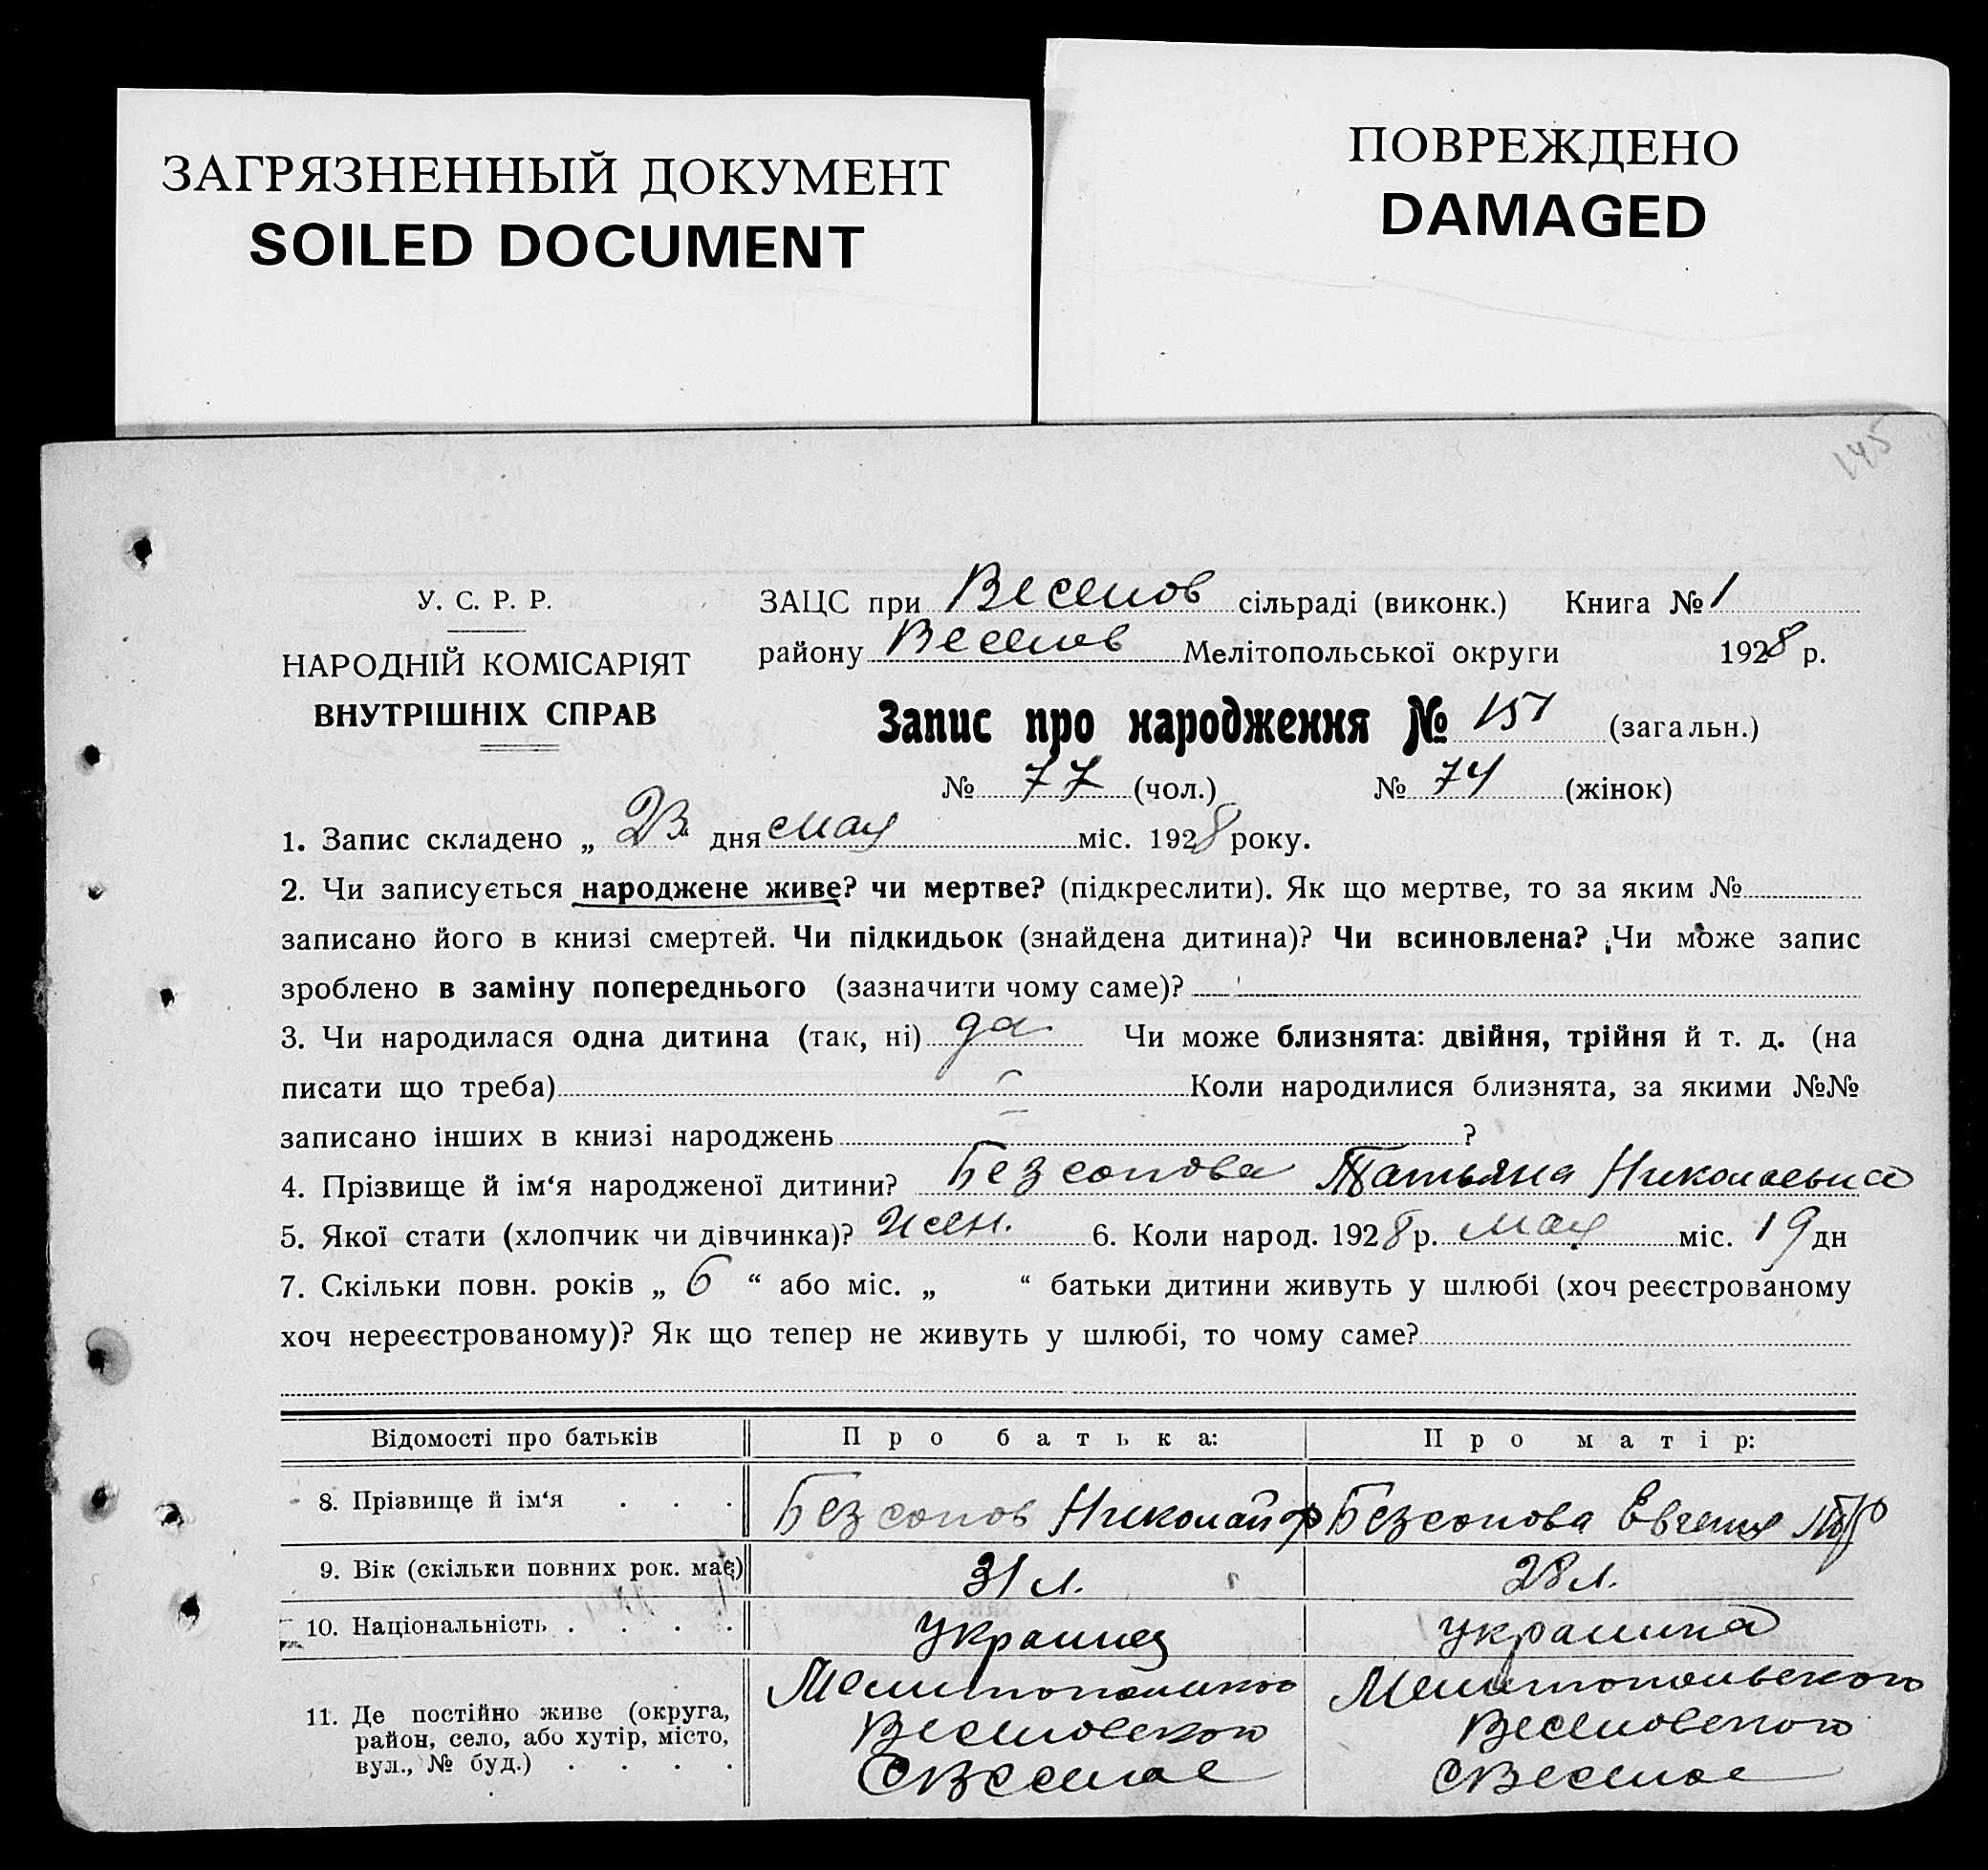 ЗАГРЯЗНЕННЫЙ ДОКУМЕНТ
SOILED DOCUMENT
ПОВРЕЖДЕНО
DAMAGED
145
У. С. Р. Р.
НАРОДНІЙ КОМІСАРІЯТ
ВНУТРІШНІХ СПРАВ
ЗАЦС при Веселов сільраді (виконк.) Книга № 1
району Веселов Мелітопольської округи 1928 р.
Запис про народження № 151 (загальн.)
№ 77 (чол.) № 74 (жінок)
1. Запис складено „ 23 дня мая міс. 1928 року.
2. Чи записується народжене живе? чи мертве? (підкреслити). Як що мертве, то за яким №
записано його в книзі смертей. Чи підкидьок (знайдена дитина)? Чи всиновлена? Чи може запис
зроблено в заміну попереднього (зазначити чому саме)?
3. Чи народилася одна дитина (так, ні) да Чи може близнята: двійня, трійня й т. д. (на
писати що треба) Коли народилися близнята, за якими №№
записано інших в книзі народжень ?
4. Прізвище й ім‘я народженої дитини? Безсонова Татьяна Николаевна
5. Якої стати (хлопчик чи дівчинка)? жен. 6. Коли народ. 1928 р. мая міс. 19 дн
7. Скільки повн. років „ 6 “ або міс. „ “ батьки дитини живуть у шлюбі (хоч реєстрованому
хоч нереєстрованому)? Як що тепер не живуть у шлюбі, то чому саме?
Відомості про батьків Про батька: Про матір:
8. Прізвище й ім‘я . . . Безсонов Николай Ф Безсонова Евгения
9. Вік (скільки повних рок. має) 31 л. 28 л.
10. Національність . . . . украинец украинка
11. Де постійно живе (округа, район, село, або хутір, місто, вул., № буд.) . . . .
Мелитопольского
Веселовского
С Веселое
Мелитопольского
Веселовского
С Веселое